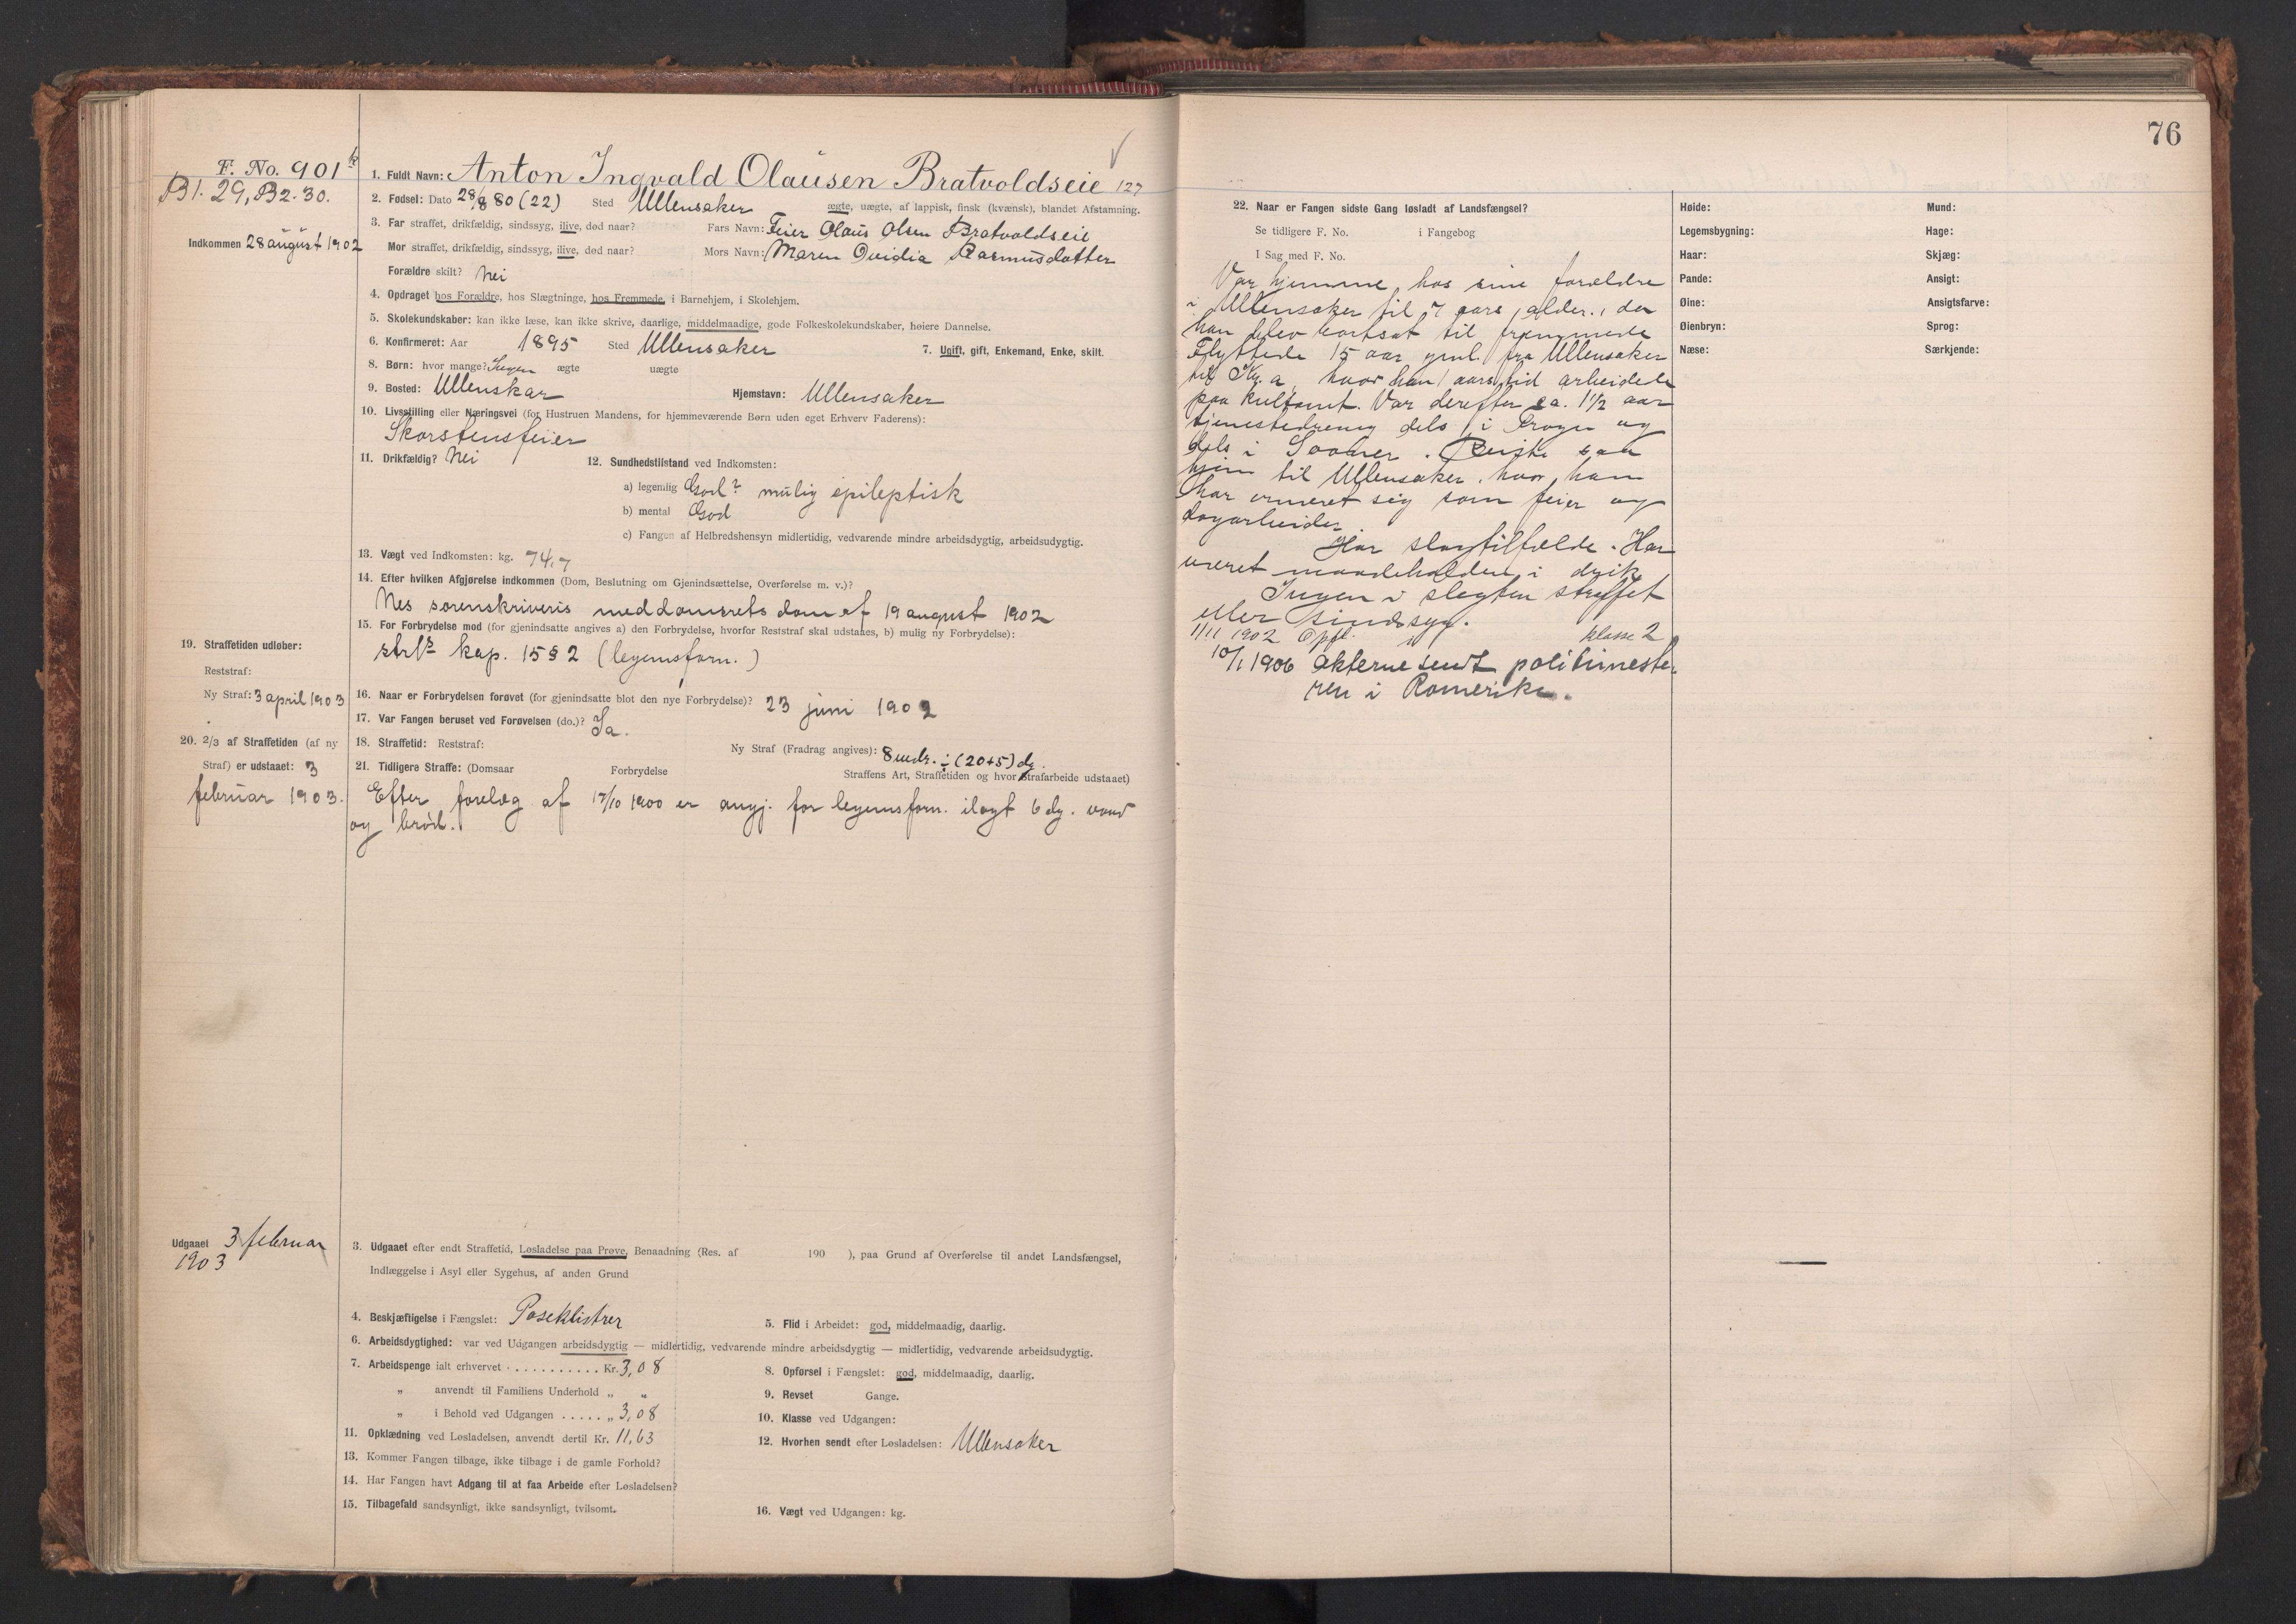 F. No. 901 k
B1. 29, B2. 30.
Indkommen 28 august 1902
1. Fuldt Navn: Anton Ingvald Olausen Bratvoldseie 127
2. Fødsel: Dato 28/8 80 (22) Sted Ullensaker ægte, uægte, af lappisk, finsk (kvænsk), blandet Afstamning.
3. Far straffet, drikfældig, sindssyg, ilive, død naar? Fars Navn: Feier Olaus Olsen Bratvoldseie
Mor straffet, drikfældig, sindssyg, ilive, død naar? Mors Navn: Maren Ovidia Rasmusdatter
Forældre skilt? Nei
4. Opdraget hos Forældre, hos Slægtninge, hos Fremmede, i Barnehjem, i Skolehjem.
5. Skolekundskaber: kan ikke læse, kan ikke skrive, daarlige, middelmaadige, gode Folkeskolekundskaber, høiere Dannelse.
6. Konfirmeret: Aar 1895 Sted Ullensaker 7. Ugift, gift, Enkemand, Enke, skilt.
8. Børn: hvor mange? Ingen ægte uægte
9. Bosted: Ullenskar Hjemstavn: Ullensaker
10. Livsstilling eller Næringsvei (for Hustruen Mandens, for hjemmeværende Børn uden eget Erhverv Faderens):
Skorstensfeier
11. Drikfældig? Nei 12. Sundhedstilstand ved Indkomsten:
a) legemlig God? mulig epileptisk
b) mental God
c) Fangen af Helbredshensyn midlertidig, vedvarende mindre arbeidsdygtig, arbeidsudygtig.
13. Vægt ved Indkomsten: kg. 74,7
14. Efter hvilken Afgjørelse indkommen (Dom, Beslutning om Gjenindsættelse, Overførelse m. v.)?
Nes sorenskriveris meddomsrets dom af 19 august 1902
15. For Forbrydelse mod (for gjenindsatte angives a) den Forbrydelse, hvorfor Reststraf skal udstaaes, b) mulig ny Forbrydelse):
strfs kap. 15 § 2 (legemsforn.)
16. Naar er Forbrydelsen forøvet (for gjenindsatte blot den nye Forbrydelse)? 23 juni 1902
17. Var Fangen beruset ved Forøvelsen (do.)? Ja.
18. Straffetid: Reststraf: Ny Straf (Fradrag angives): 8 mdr. ÷ (20+5) dg.
19. Straffetiden udløber:
Reststraf:
Ny Straf: 3 april 1903
20. 2/3 af Straffetiden (af ny
Straf) er udstaaet: 3
februar 1903.
21. Tidligere Straffe: (Domsaar Forbrydelse Straffens Art, Straffetiden og hvor Strafarbeide udstaaet)
Efter forelæg af 17/10 1900 er angj. for legemsforn. ilagt 6 dg. vand
og brød.
Udgaaet 3 februar
1903
3. Udgaaet efter endt Straffetid, Løsladelse paa Prøve, Benaadning (Res. af 190 ), paa Grund af Overførelse til andet Landsfængsel,
Indlæggelse i Asyl eller Sygehus, af anden Grund
4. Beskjæftigelse i Fængslet: Poseklistrer 5. Flid i Arbeidet: god, middelmaadig, daarlig.
6. Arbeidsdygtighed: var ved Udgangen arbeidsdygtig — midlertidig, vedvarende mindre arbeidsdygtig — midlertidig, vedvarende arbeidsudygtig.
7. Arbeidspenge ialt erhvervet ........... Kr. 3,08 8. Opførsel i Fængslet: god, middelmaadig, daarlig.
„ anvendt til Familiens Underhold „ „ 9. Revset Gange.
„ i Behold ved Udgangen ..... „ 3,08 10. Klasse ved Udgangen:
11. Opklædning ved Løsladelsen, anvendt dertil Kr. 11,63 12. Hvorhen sendt efter Løsladelsen: Ullensaker
13. Kommer Fangen tilbage, ikke tilbage i de gamle Forhold?
14. Har Fangen havt Adgang til at faa Arbeide efter Løsladelsen?
15. Tilbagefald sandsynligt, ikke sandsynligt, tvilsomt. 16. Vægt ved Udgangen: kg.
76
22. Naar er Fangen sidste Gang løsladt af Landsfængsel?
Se tidligere F. No. i Fangebog
I Sag med F. No.
Var hjemme hos sine forældre
i Ullensaker til 7 aars alder, da
han blev bortsat til fremmede
Flyttede 15 aar gml. fra Ullensaker
til Kr.a, hvor han 1 aars tid arbeidede
paa Kultomt. Var derefter ca. 1 1/2 aar
tjenestedreng dels i Frogn og
dels i Sooner. Reiste saa
hjem til Ullensaker, hvor han
har ernæret sig som feier og
dagarbeider.
Har slagtilfælde. Har
været maadeholden i drik
Ingen i slegten straffet
eller sindssyg.
1/11 1902 Opfl. i klasse 2
10/1 1906 akterne sendt politimeste-
ren i Romerike.
Høide:
Legemsbygning:
Haar:
Pande:
Øine:
Øienbryn:
Næse:
Mund:
Hage:
Skjæg:
Ansigt:
Ansigtsfarve:
Sprog:
Særkjende: